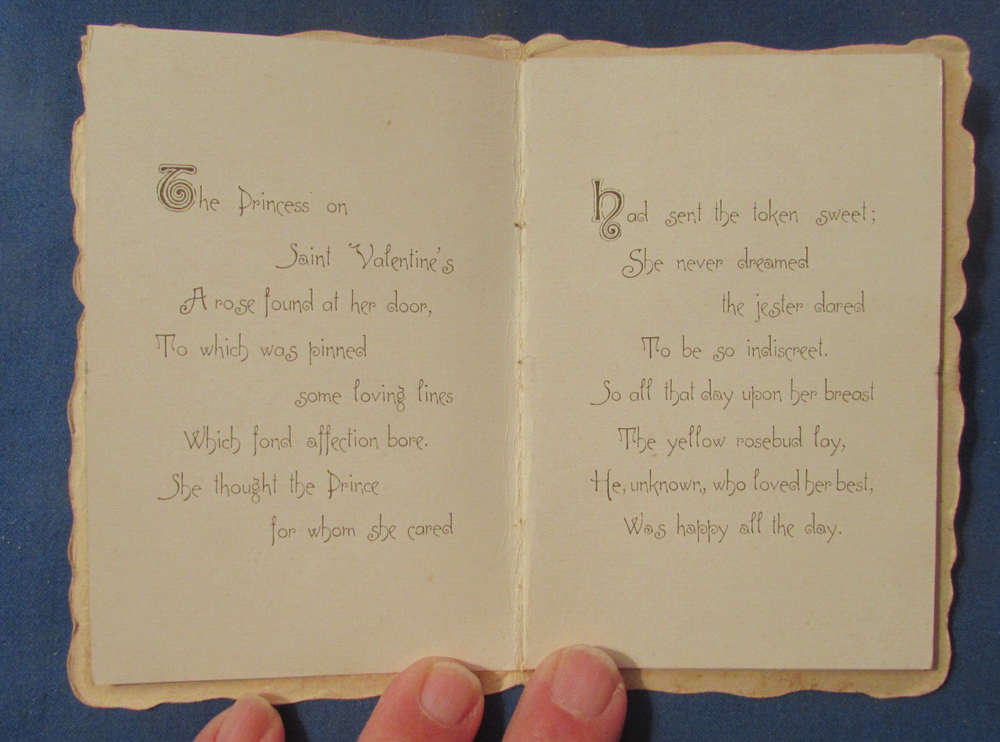 The Princess on
Saint Valentine's
A rose found at her door,
To which was pinned
some loving lines
Which fond affection bore.
She thought the Prince
for whom she cared
Had sent the token sweet;
She never dreamed
the jester dared
To be so indiscreet.
So all that day upon her breast
The yellow rosebud lay,
He, unknown, who loved her best,
Was happy all the day.